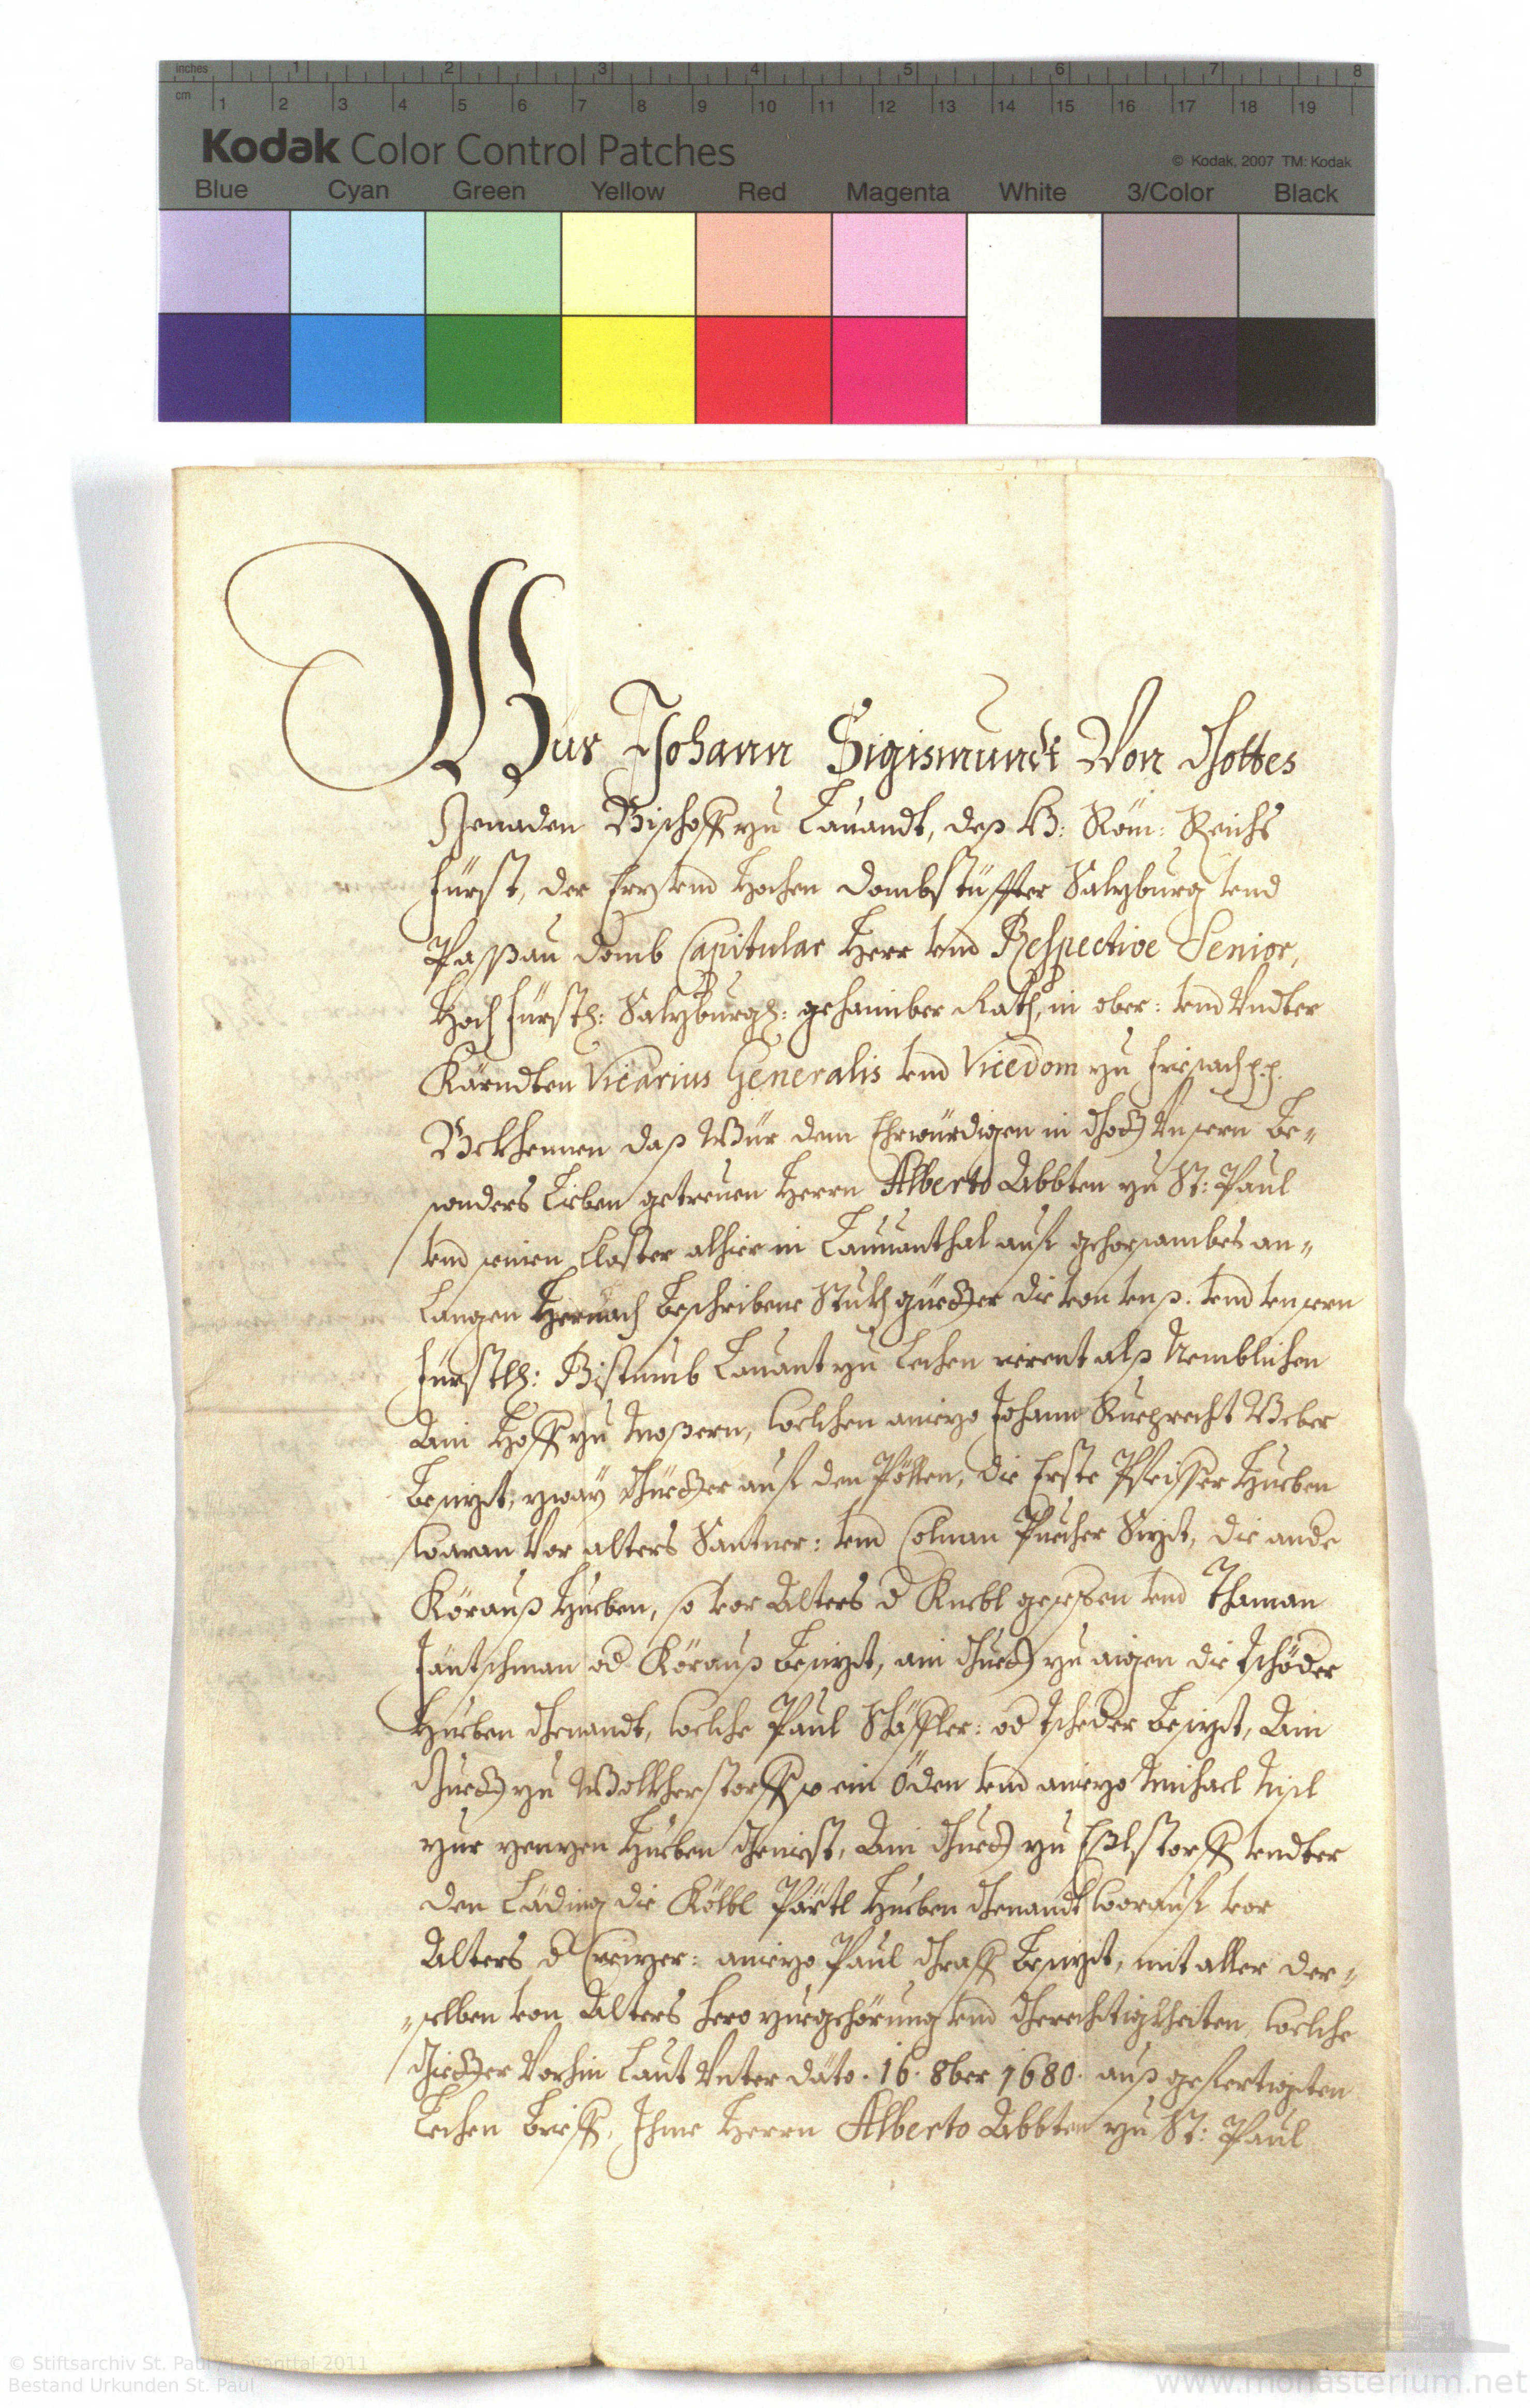 inches 1 2 3 4 5 6 7 8
cm 1 2 3 4 5 6 7 8 9 10 11 12 13 14 15 16 17 18 19
Kodak Color Control Patches
© Kodak, 2007 TM: Kodak
Blue Cyan Green Yellow Red Magenta White 3/Color Black
Wür Johann Sigismundt Von Gottes
Genaden Bischoff zu Lauandt, deß H: Röm: Reichs
Fürst, der Erz vnd Hochen Dombstüffter Salzburg vnd
Passau Domb Capitular Herr vnd Respective Senior,
Hoch fürstl: Salzburgl: gehaimber Rath, in ober: vnd Vndter
Kärndten Vicarius Generalis vnd Vicedom zu Friesach p.p.
Bekhennen daß Wür dem Ehrwürdigen in Gott Vnsern be-
sonders Lieben getreuen Herrn Alberto Abbten zu St: Paul
vnd seinen Closter alhier in Lauanthal auf gehorsambes an-
langen hernach beschribene Stukh güetter die von vnß. vnd vnsern
fürstl: Bistumb Lauant zu Lechen rierent alß Nemblichen
Ain Hoff zu Mosern, welchen aniezo Johann Rueprecht Weber
besizt, zway Güetter auf den Pölln, die Erste Pfeiffer Hueben
waran Vor alters Santner: vnd Colman Puecher Sizt, die ande
Köraus Hueben, so vor Alters d Knebl gesessen vnd Thaman
Jäntschman od Köraus besizt, ain Guett zu aigen die Tschöder
Hueben Genandt, welche Paul Schäffler: od Tscheder besizt, Ain
Guett zu Wolkherstorff so ein Öden vnd aniezo Michael Nisl
zur Hueben Geniest, Ain Guett zu Eßlstorff vndter
den Läding die Kölbl Pärtl Hueben Genandt worauf vor
Alters d aniezo Paul Graff besizt, mit aller der-
selben von Alters hero zuegehörung vnd Gerechtigkheiten, welche
Giետter Vorhin Laut Vnter dato. 16. 8ber 1680. auß gefertigten
Lechen brieff, Ihme Herrn Alberto Abbten zu St: Paul
© Stiftsarchiv St. Paul / Lavanttal 2011
Bestand Urkunden St. Paul
www.monasterium.net